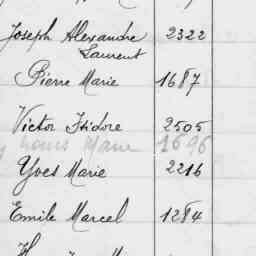 Joseph Alexandre 2322
Laurent
Pierre Marie 1687
Victor Isidore 2505
Louis Marie 1696
Yves Marie 2216
Emile Marcel 1284